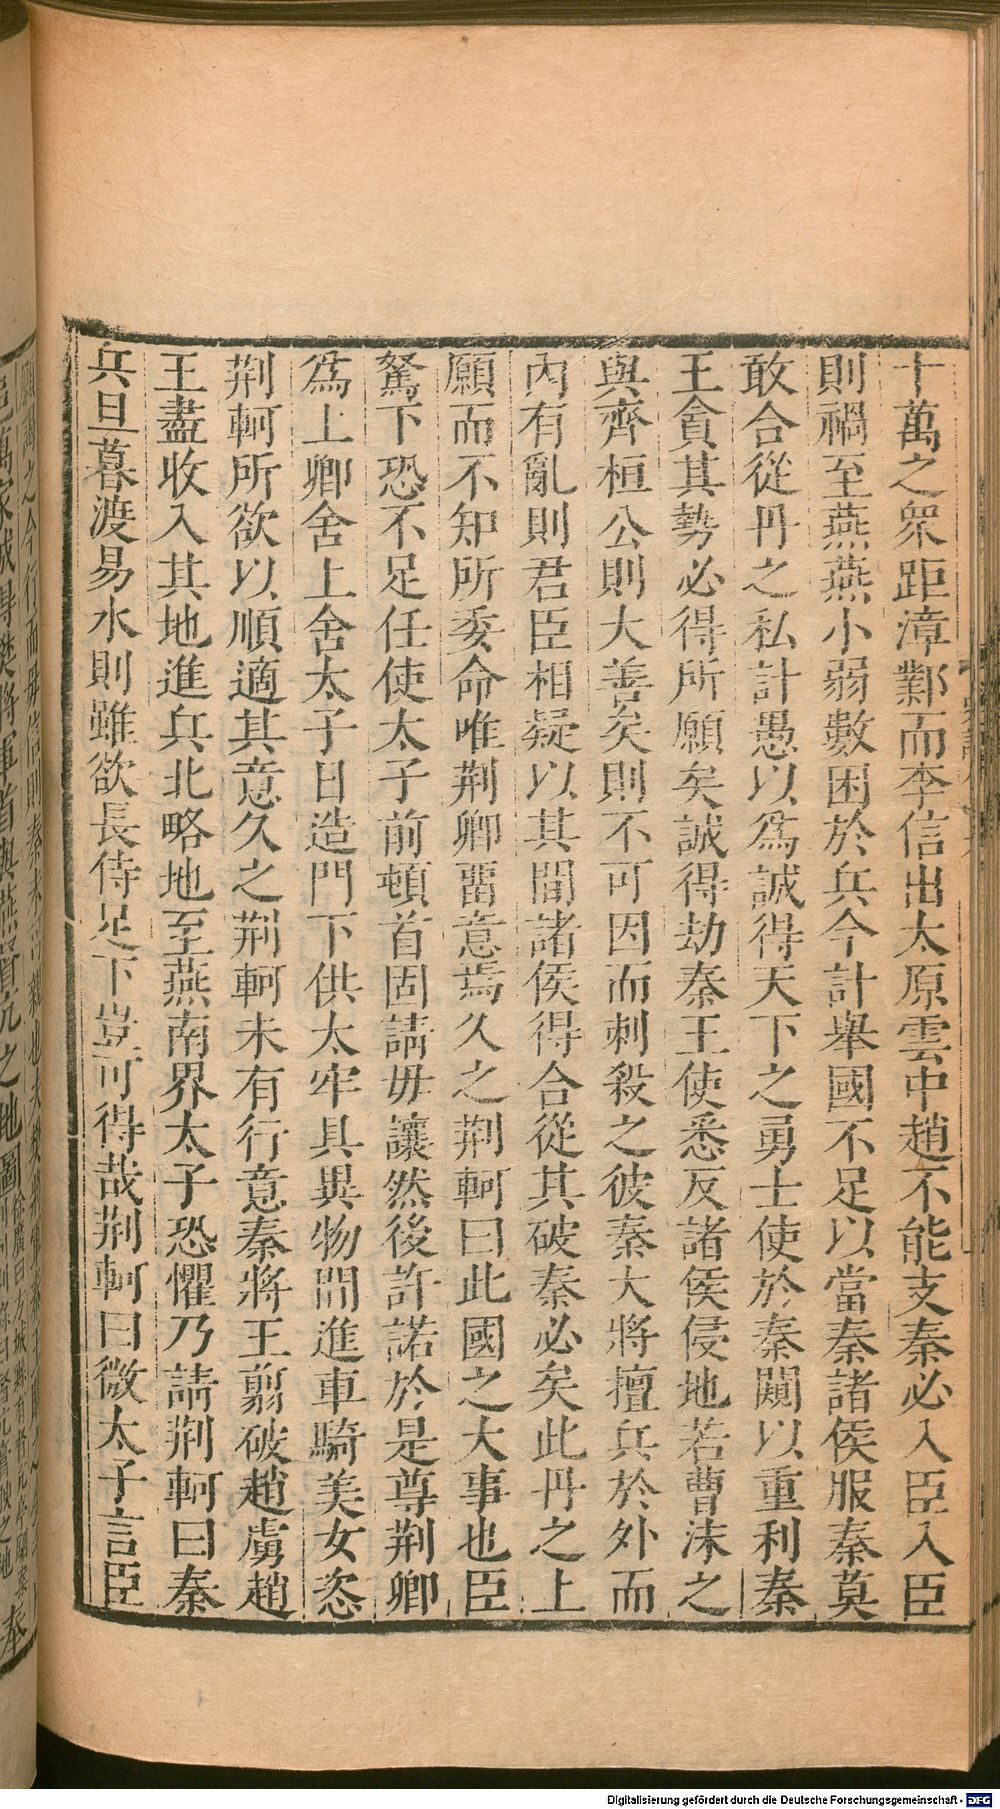 十萬之眾距漳鄴而李信出太原雲中趙不能支秦必入臣入臣
則禍至燕燕小弱數困於兵今計舉國不足以當秦諸侯服秦莫
敢合從丹之私計愚以爲誠得天下之勇士使於秦闚以重利秦
王貪其勢必得所願矣誠得劫秦王使悉反諸侯侵地若曹沬之
與齊桓公則大善矣則不可因而刺殺之彼秦大將擅兵於外而
內有亂則君臣相疑以其閒諸侯得合從其破秦必矣此丹之上
願而不知所委命唯荆卿畱意焉久之荆軻曰此國之大事也臣
駑下恐不足任使太子前頓首固請毋讓然後許諾於是尊荆卿
爲上卿舍上舍太子日造門下供太牢具異物閒進車騎美女恣
荆軻所欲以順適其意久之荆軻未有行意秦將王翦破趙虜趙
王盡收入其地進兵北略地至燕南界太子恐懼乃請荆軻曰秦
兵旦暮渡易水則雖欲長侍足下豈可得哉荆軻曰微太子言臣
Digitalisierung gefördert durch die Deutsche Forschungsgemeinschaft - DFG